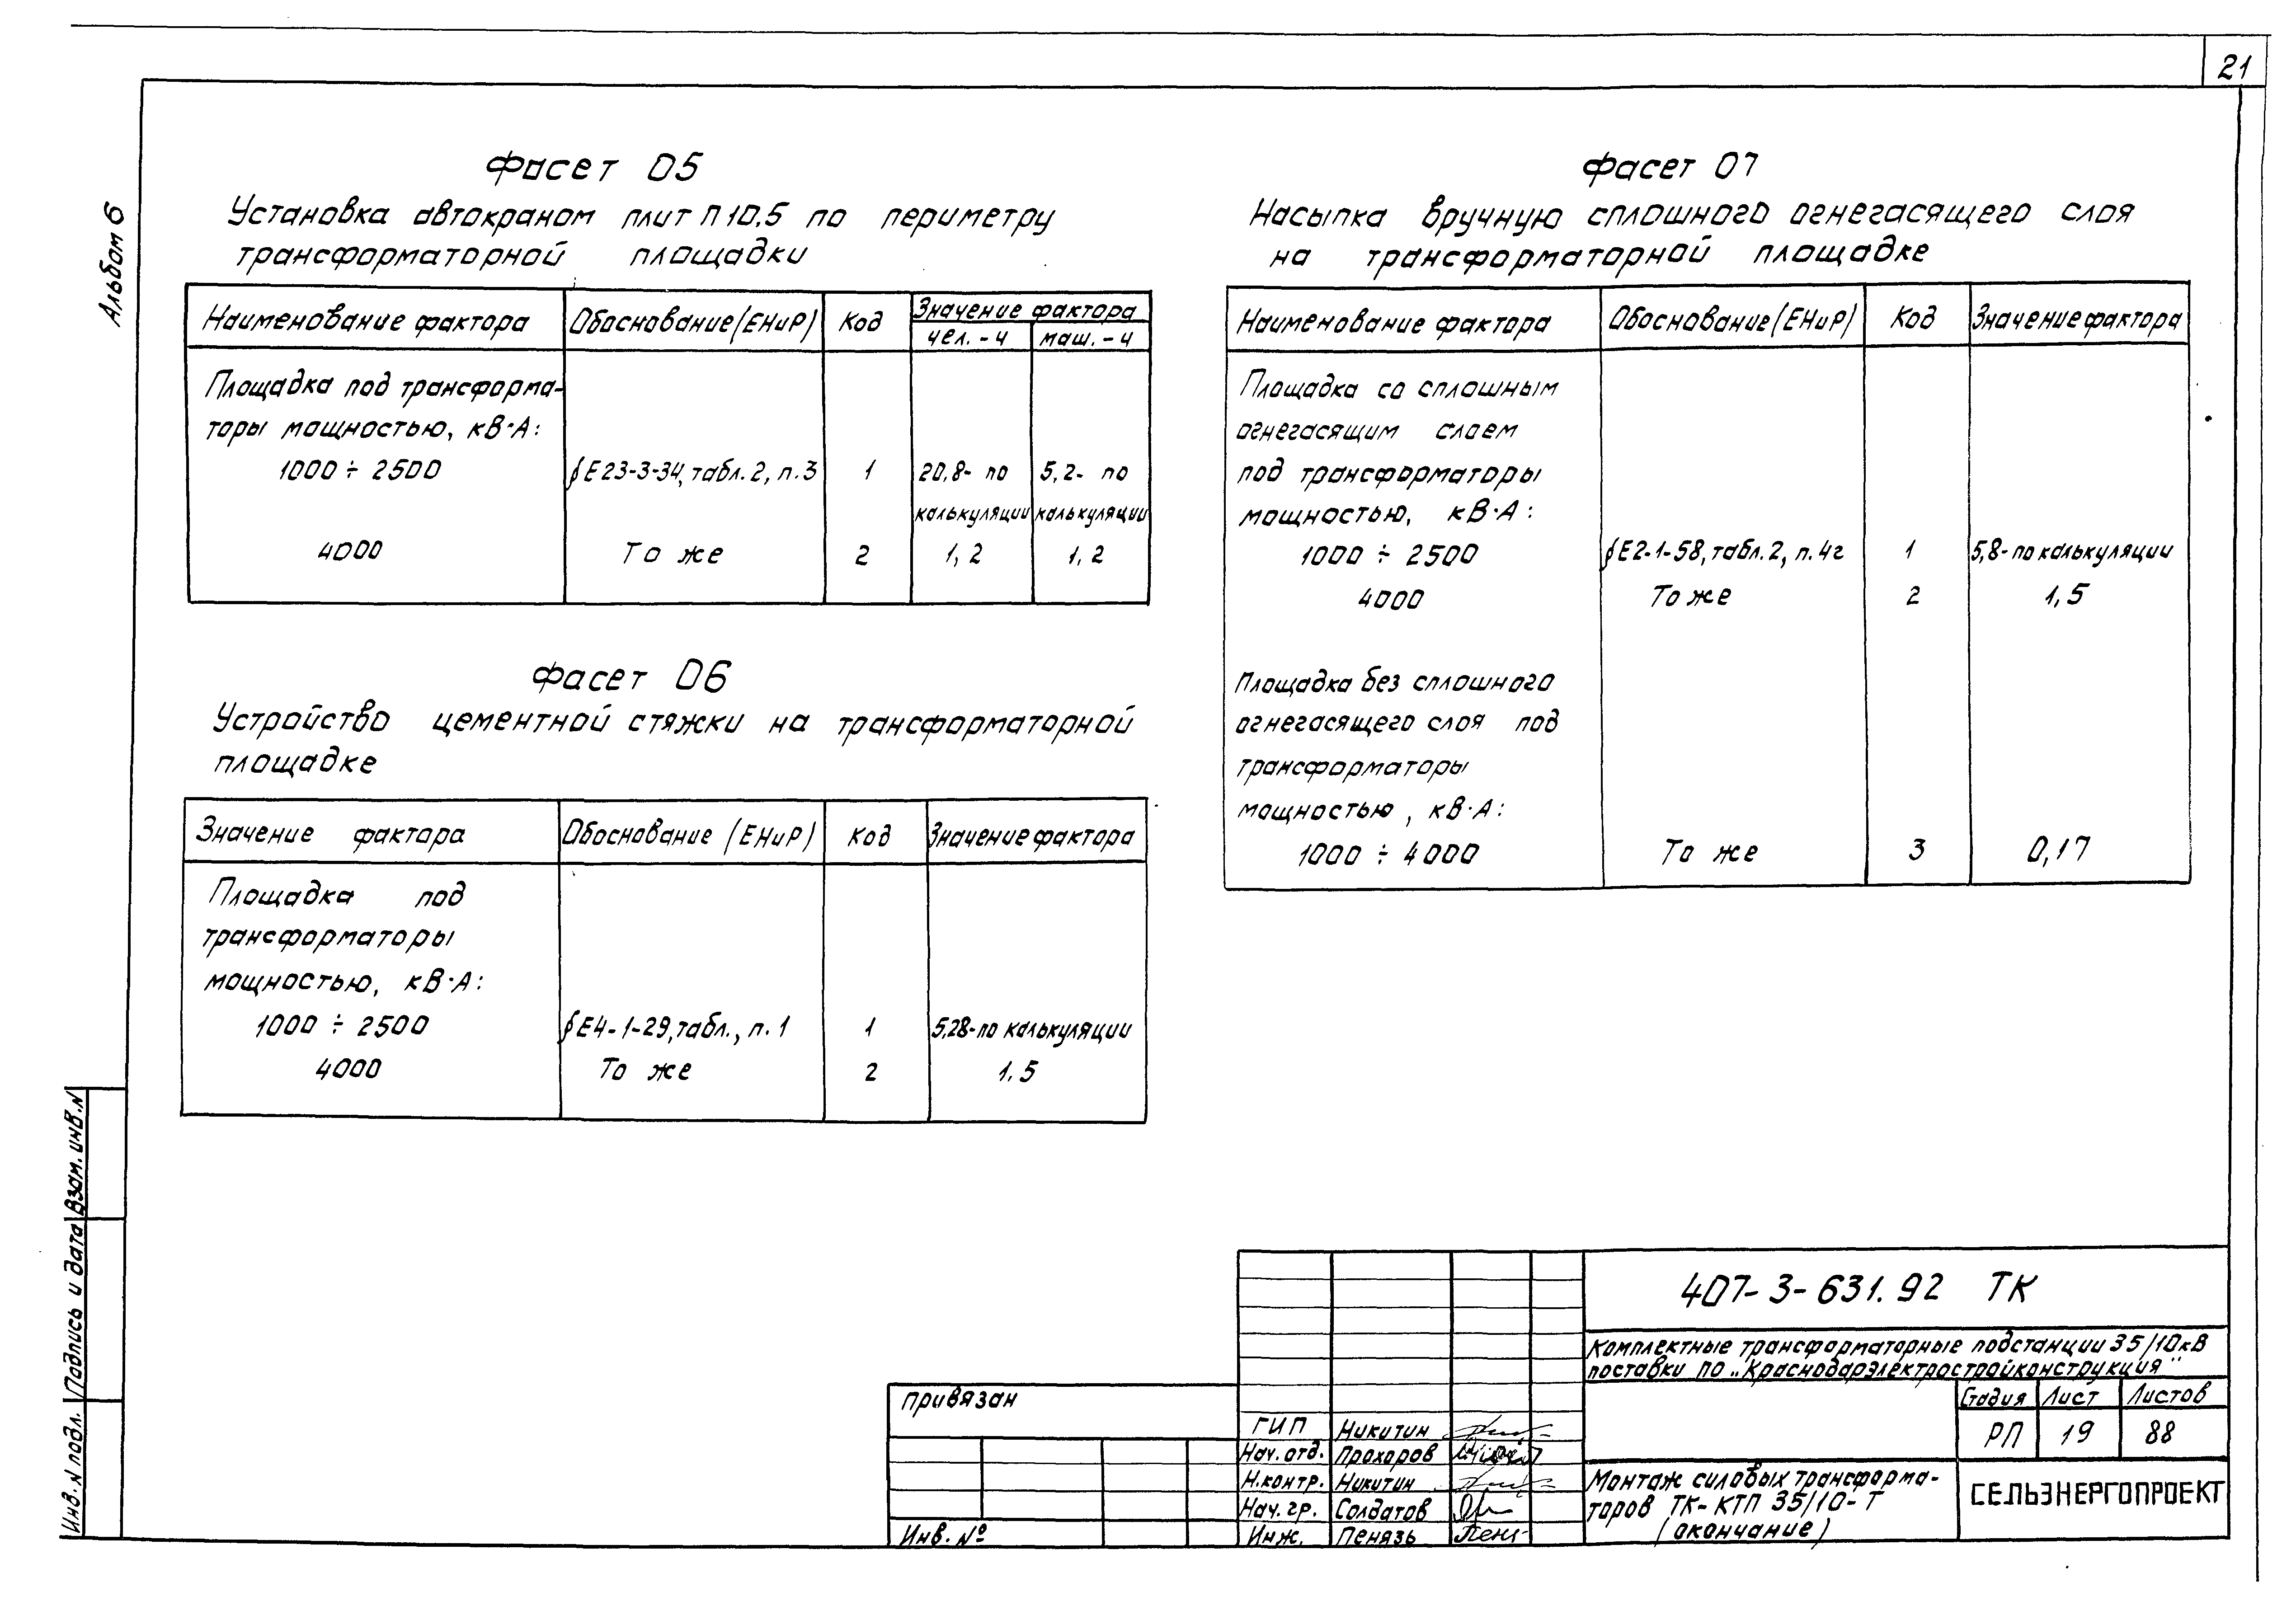 21
Альбом 6
Фасет 05
Установка автокраном плит П10,5 по периметру
трансформаторной площадки
Наименование фактора
Обоснование (ЕНиР)
Код
Значение фактора
чел.-ч
маш.-ч
Площадка под трансформа-
торы мощностью, кВ·А:
1000 ÷ 2500
§ Е23-3-34, табл. 2, п.3
1
20,8- по
5,2- по
калькуляции
калькуляции
4000
То же
2
1,2
1,2
Фасет 06
Устройство цементной стяжки на трансформаторной
площадке
Значение фактора
Обоснование (ЕНиР)
Код
Значение фактора
Площадка под
трансформаторы
мощностью, кВ·А:
1000 ÷ 2500
§ Е4-1-29, табл., п.1
1
5,28-по калькуляции
4000
То же
2
1.5
Фасет 07
Насыпка вручную сплошного огнегасящего слоя
на трансформаторной площадке
Наименование фактора
Обоснование (ЕНиР)
Код
Значение фактора
Площадка со сплошным
огнегасящим слоем
под трансформаторы
мощностью, кВ·А:
1000 ÷ 2500
§ Е2-1-58, табл. 2, п.4г
1
5,8-по калькуляции
4000
То же
2
1,5
Площадка без сплошного
огнегасящего слоя под
трансформаторы
мощностью, кВ·А:
1000 ÷ 4000
То же
3
0,17
Инв. N подл.
Подпись и дата
Взам. инв. N
Привязан
Инв. №
ГИП Никитин
Нач. отд. Прохоров
Н.контр. Никитин
Нач. гр. Солдатов
Инж. Пенязь
407-3-631.92 ТК
Комплектные трансформаторные подстанции 35/10кВ
поставки ПО „Краснодарэлектростройконструкция"
Стадия Лист Листов
РП 19 88
Монтаж силовых трансформа-
торов ТК-КТП 35/10-Т
(окончание)
СЕЛЬЭНЕРГОПРОЕКТ